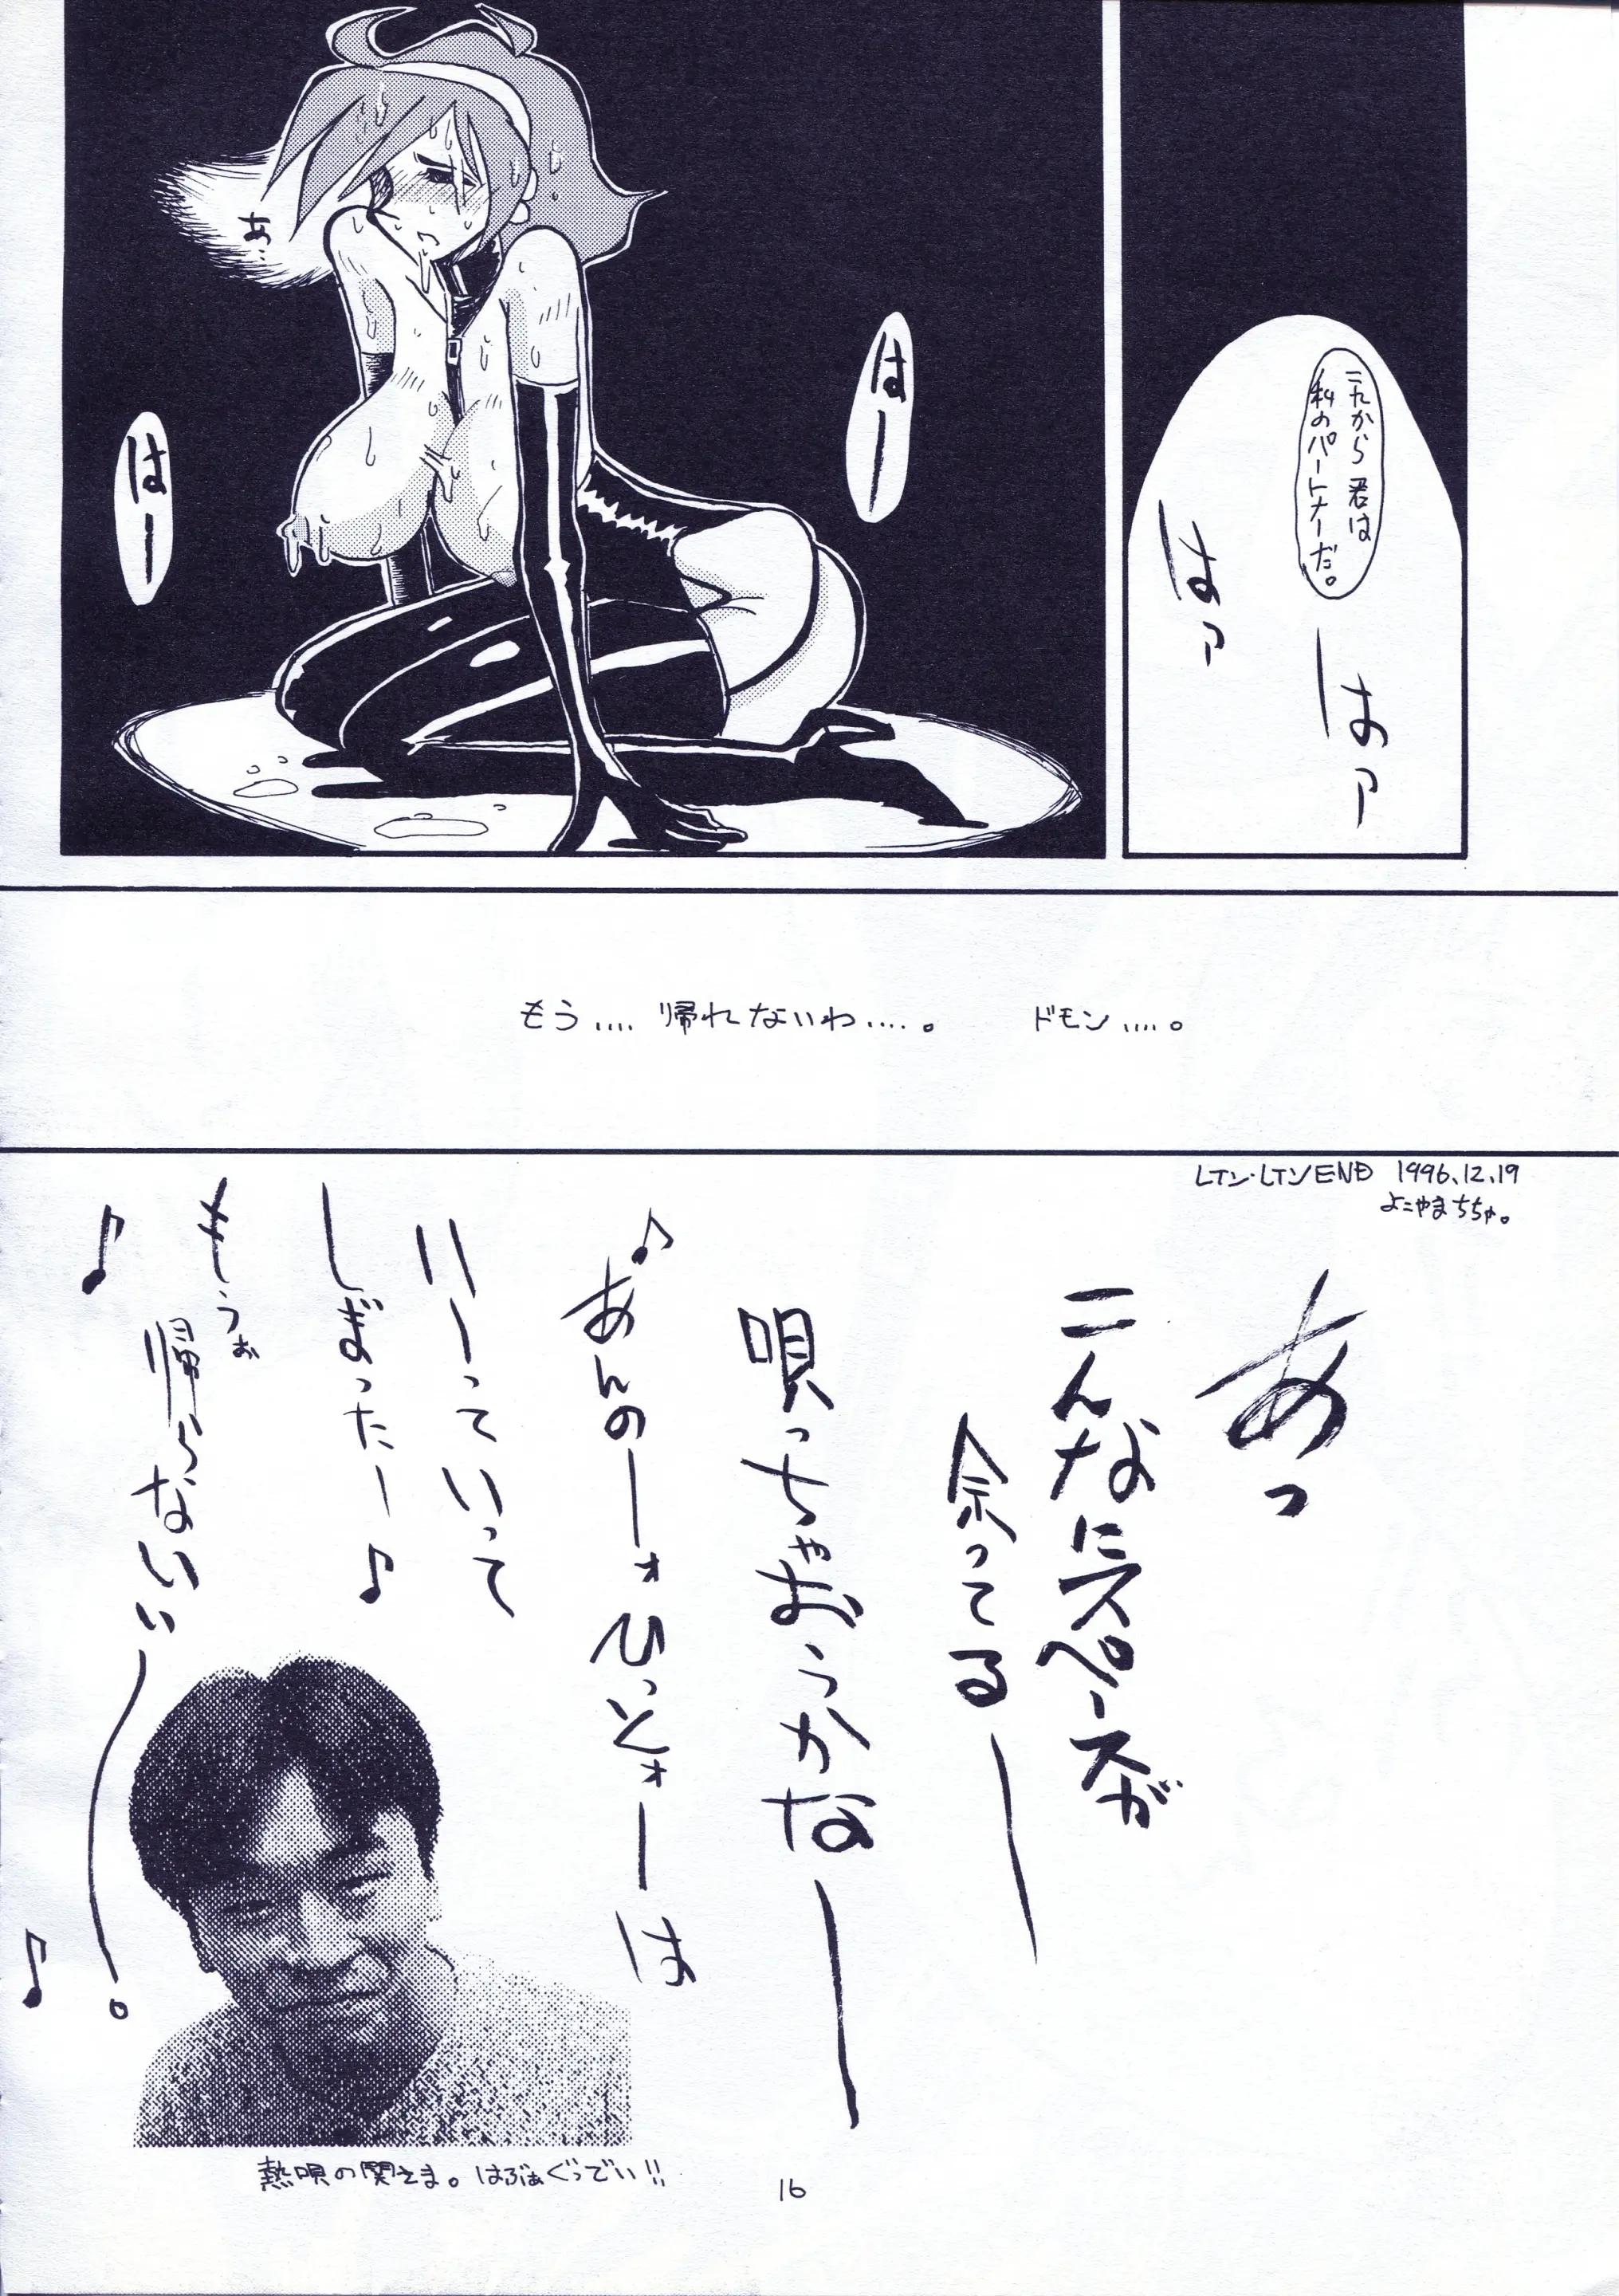 これから君は
私のパートナーだ。
はァ
はァ
はー
あ…
はー
もう…. 帰れないわ….。　ドモン….。
レイン・レインEND 1996.12.19
よこやまちちゃ。
あっ
こんなにスペースが
余ってるー
唄っちゃおうかなー
♪あんのーォひっとォーは
いーっていって
しまったー♪
もうぉ
帰らないぃー。♪
♪
熱唱の関さま。はぶぁぐっでい!!
16